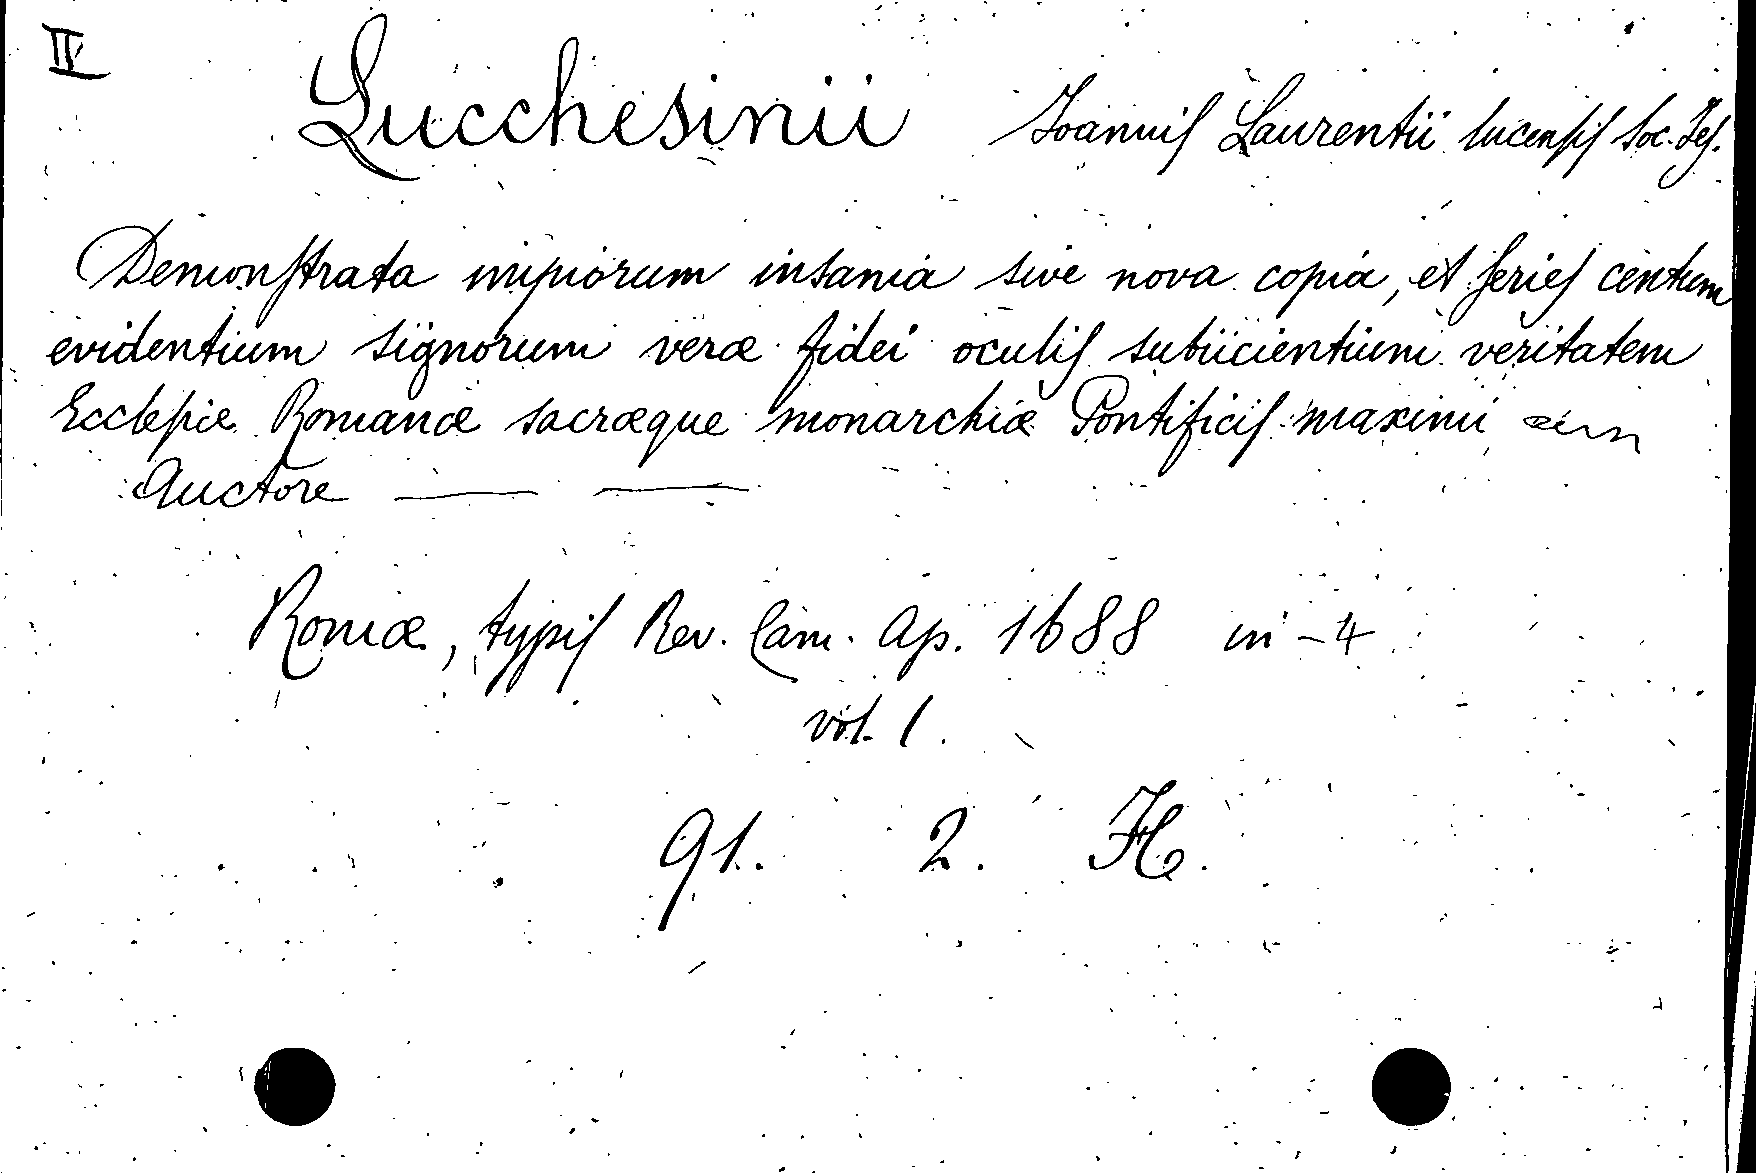 IV
Lucchesinii Joannis Laurentii lucensis Soc. Jes.
Demonstrata impiorum insania sive nova copia, et series centum
evidentium signorum veræ fidei oculis subiicientium veritatem
Ecclesiæ Romanæ sacræque monarchiæ Pontificis maximi
Auctore — —
Romæ, typis Rev. Cam. Ap. 1688 in-4
vol. 1.
91. 2. H.